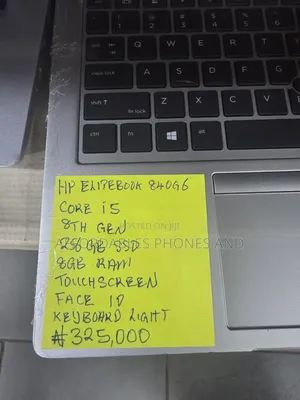 tab
Q W E R T Y
caps lock
A S D F G
shift
fn lock
Z X C V B
ctrl
fn
alt
HP ELITEBOOK 840G6
CORE i5
8TH GEN
POSTED ON JIJI
256 GB SSD
AFFORDABLES PHONES AND
8GB RAM
TOUCHSCREEN
FACE ID
KEYBOARD LIGHT
₦325,000